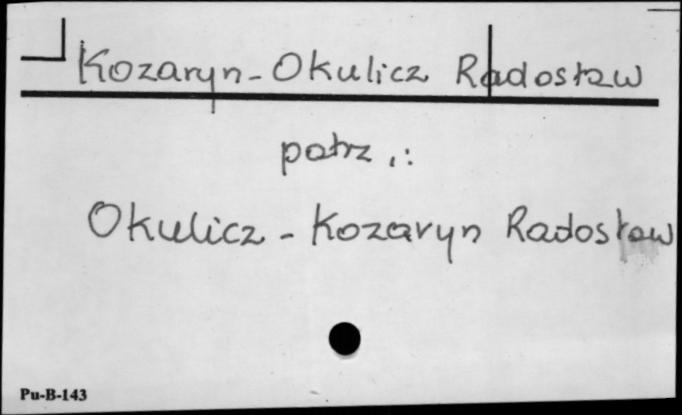 Kozaryn-Okulicz Radosław
patrz,:
Okulicz-Kozaryn Radosław
Pu-B-143